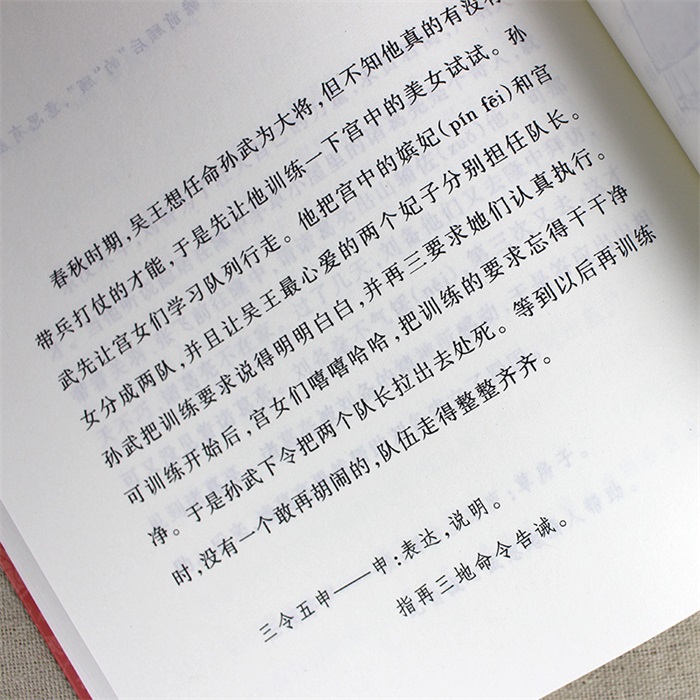 春秋时期,吴王想任命孙武为大将,但不知他真的有没有
带兵打仗的才能,于是先让他训练一下宫中的美女试试。孙
武先让宫女们学习队列行走。他把宫中的嫔妃(pín fēi)和宫
女分成两队,并且让吴王最心爱的两个妃子分别担任队长。
孙武把训练要求说得明明白白,并再三要求她们认真执行。
可训练开始后,宫女们嘻嘻哈哈,把训练的要求忘得干干净
净。于是孙武下令把两个队长拉出去处死。等到以后再训练
时,没有一个敢再胡闹的,队伍走得整整齐齐。
三令五申——申:表达,说明。
指再三地命令告诫。